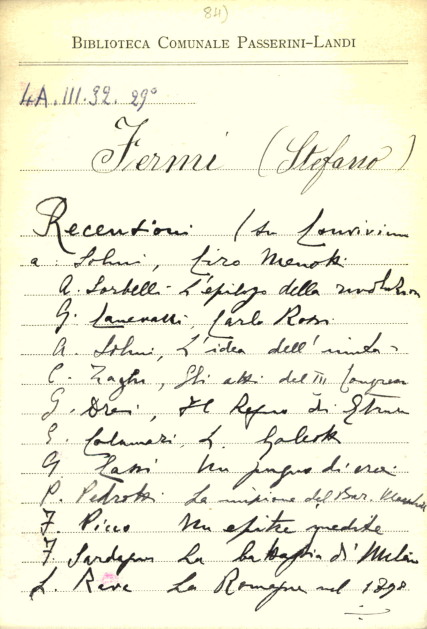 84)
BIBLIOTECA COMUNALE PASSERINI-LANDI
4A.III.32.29°
Fermi (Stefano)
Recensioni (su Convivium
a. Solmi, Ciro Menotti
A. Sorbelli - L'epilogo della rivoluzion
G. Canevazzi, Carlo Rossi
A. Solmi, L'idea dell'unità -
C. Zaghi, Gli atti del III Congresso
G. Drei, Il Regno di Etruria
E. Calamari, L. Galeotti
G. Un pugno di eroi
P. Pedrotti La missione del Bar.
F. Picco Un epistre inedite
F. La battaglia di Milano
L. Rava La Romagna nel 1898